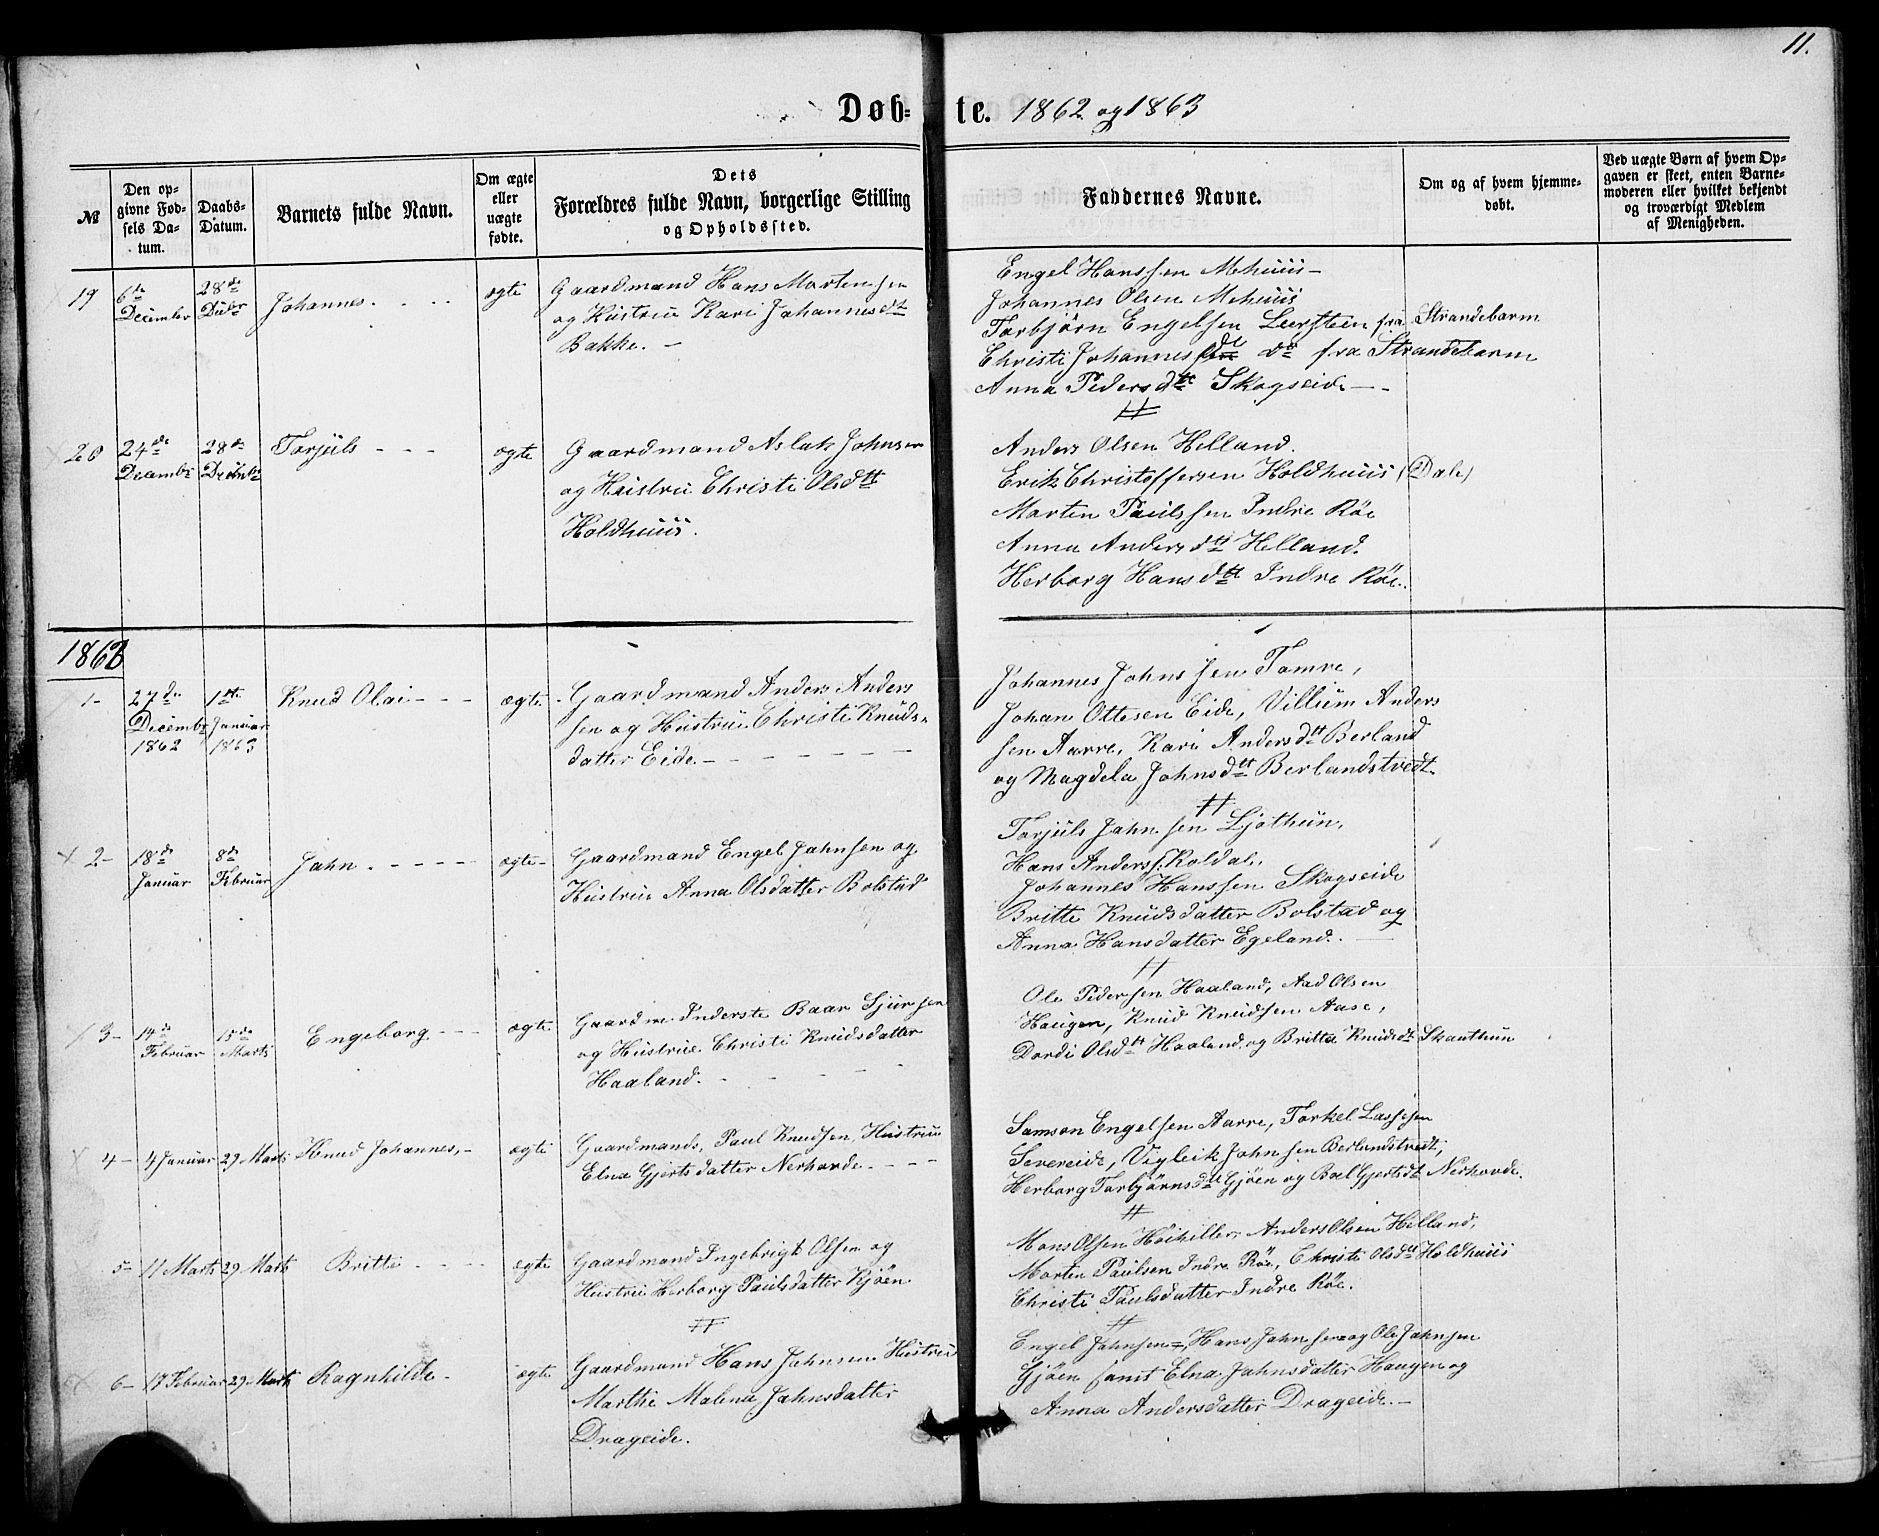 11.
Døb- te. 1862 og 1863
№
Den op-
givne Fød-
sels Da-
tum.
Daabs-
Datum.
Barnets fulde Navn.
Om ægte
eller
uægte
fødte.
Dets
Forældres fulde Navn, borgerlige Stilling
og Opholdssted.
Faddernes Navne.
Om og af hvem hjemme-
døbt.
Ved uægte Børn af hvem Op-
gaven er skeet, enten Barne-
moderen eller hvilket bekjendt
og troværdigt Medlem
af Menigheden.
19
6te
December
28de
Decbr
Johannes. - - -
ægte
Gaardmand Hans Mortensen
og Hustrue Kari Johannesdtr
Bakke. -
Engel Hanssen Mehuus -
Johannes Olsen Mehuus
Torbjörn Engelsen Leersteen fra Strandebarm
Christi Johannes do fra Strandebarm
Anna Pedersdtr Skogseide - -
20
24de
Decembr
28de
Torjuls - - -
ægte
Gaardmand Aslak Johnsen
og Hustrue Christi Olsdtr
Holdhuus.
Anders Olsen Helland.
Erik Christoffersen Holdhuus (Dale)
Morten Paulssen Indre Röe
Anna Andersdtr Helland.
Herborg Hansdtr Indre Röe.
1863
1-
27de
Decembr
1862
1ste
Januar
1863
Knud Olai - - -
ægte
Gaardmand Anders Anders
sen og Hustrue Christi Knuds-
datter Eide - - - - - -
Johannes Johnssen Tomre,
Johan Ottesen Eide, Villum Anders
sen Aarre, Kari Andersdtr Berland
og Magdela Johnsdtr Berlandstvedt
2-
18de
Januar
8de
Februar
Jahn. - - - - -
ægte-
Gaardmand Engel Jahnsen og
Hustrue Anna Olsdatter Bolstad
Torjuls Jahnsen Ljothun,
Hans Anderss. Koldal,
Johannes Hanssen Skogseide
Britte Knudsdatter Bolstad og
Anna Hansdatter Egeland. -
3-
14de
Februar
15de
Marts
Engeborg - - -
ægte
Gaardm. Inderste Baar Sjursen
og Hustrue Christi Knudsdatter
Haaland. - - - - -
Ole Pedersen Haaland, Aad Olsen
Haugen, Knud Knudsen Aase,
Dordi Olsdtr Haaland og Britta Knudsdtr Skauthun
4-
4 Januar
29 Marts
Knud Johannes, -
ægte
Gaardmands, Paul Knudsen, Hustrue
Elna Gjertsdatter Nerhovde - - - -
Samson Engelsen Aarre, Torkel Lassesen
Severeide, Vigleik Johnsen Berlandstvedt,
Herborg Torbjörnsdtr Gjöen og Boel Gjertsdtr Nerhovde.
5-
11 Marts
29 Marts
Britte - - - -
ægte
Gaardmand Ingebrigt Olsen og
Hustrue Herborg Paulsdatter Kjöen
Mons Olsen Höihiller, Anders Olsen Helland,
Morten Paulsen Indre Röe, Christi Olsdtr Holdhuus
Christi Paulsdatter Indre Röe.
6-
17 Februar
29 Marts
Ragnhilde -
ægte
Gaardmand Hans Jahnsen Hustrue
Marthe Malena Jahnsdatter
Drageide.
Engel Jahnsen, Hans Jahnsen og Ole Jahnsen
Gjöen samt Elna Jahnsdatter Haugen og
Anna Andersdatter Drageide. -